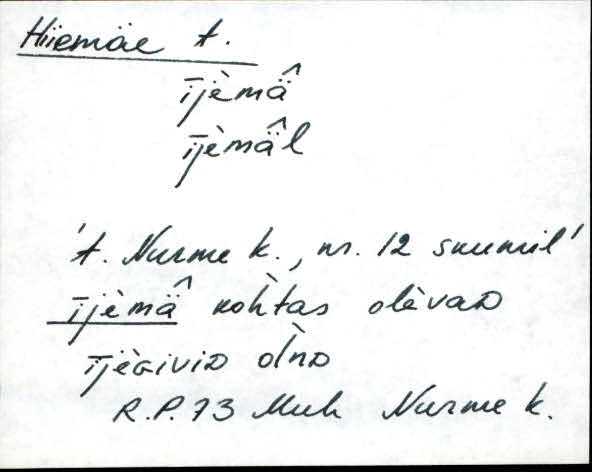 Hiiemäe A.
ījèmä̂
ījèmä̂l
'A. Nurme k., nr. 12 suumil'
ījèmä̂ kòhtas olèvaᴅ
ījèɢiviᴅ òlnᴅ
R.P. 73 Muh Nurme k.